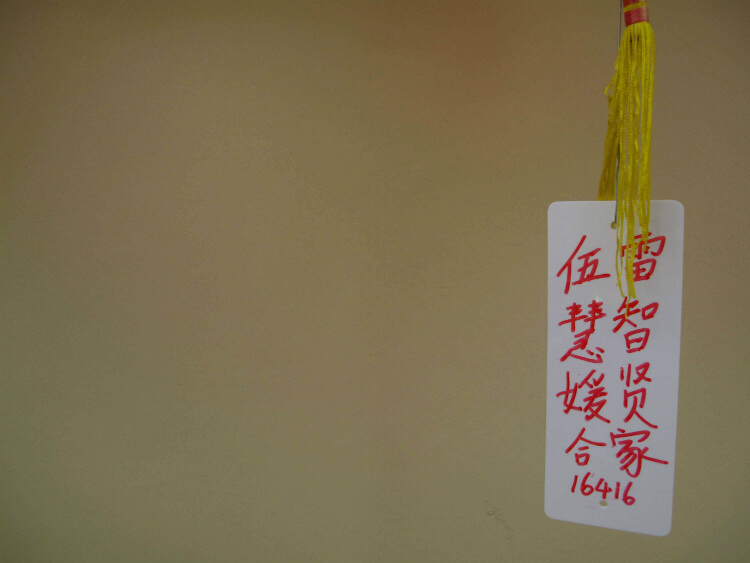 雷智贤家
伍慧媛合
16416